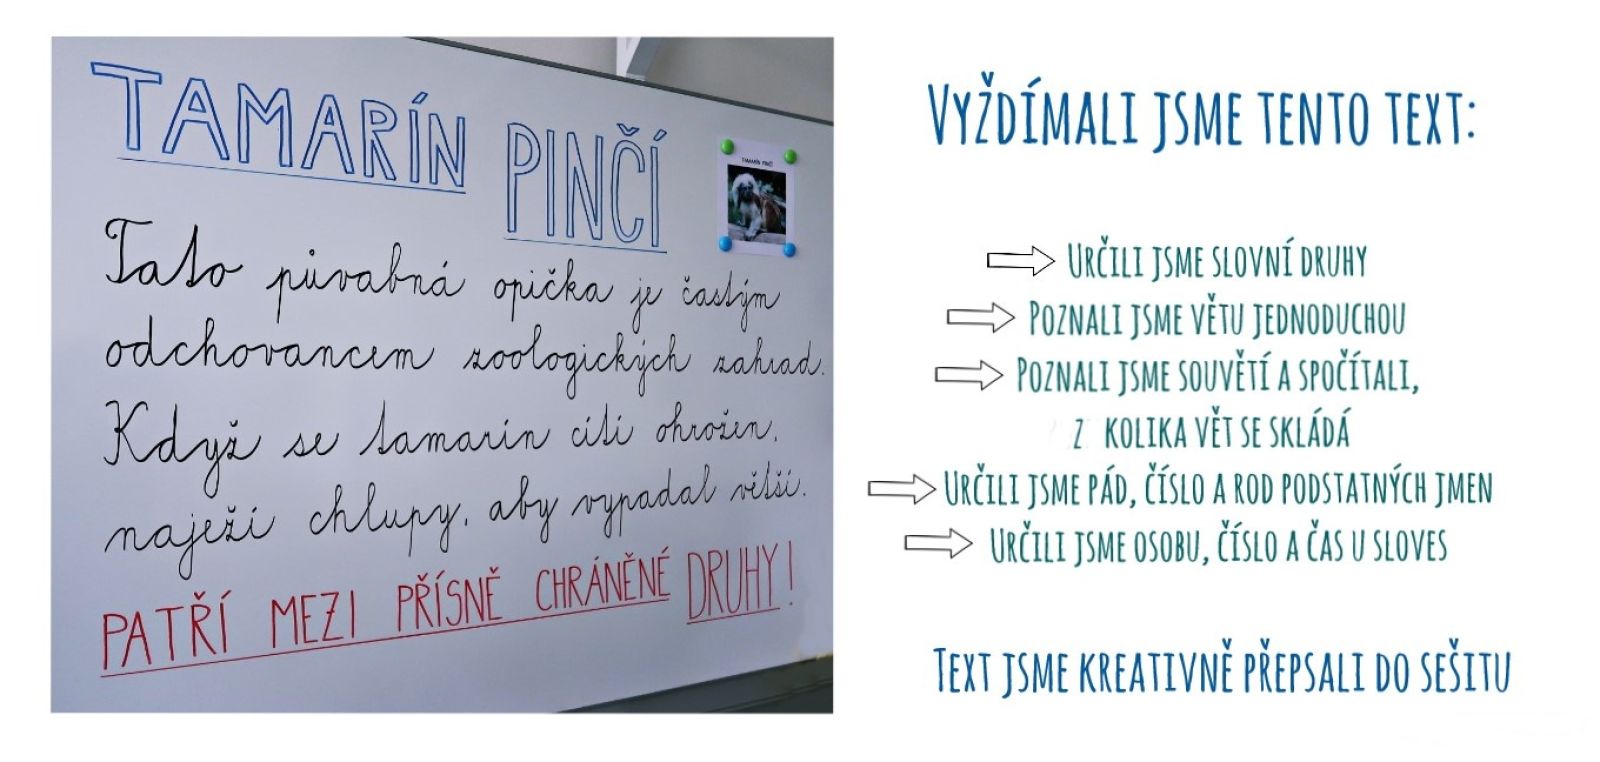 TAMARÍN PINČÍ
TAMARÍN PINČÍ
Tato půvabná opička je častým
odchovancem zoologických zahrad.
Když se tamarín cítí ohrožen,
naježí chlupy, aby vypadal větší.
PATŘÍ MEZI PŘÍSNĚ CHRÁNĚNÉ DRUHY!
VYŽDÍMALI JSME TENTO TEXT:
URČILI JSME SLOVNÍ DRUHY
POZNALI JSME VĚTU JEDNODUCHOU
POZNALI JSME SOUVĚTÍ A SPOČÍTALI,
Z KOLIKA VĚT SE SKLÁDÁ
URČILI JSME PÁD, ČÍSLO A ROD PODSTATNÝCH JMEN
URČILI JSME OSOBU, ČÍSLO A ČAS U SLOVES
TEXT JSME KREATIVNĚ PŘEPSALI DO SEŠITU